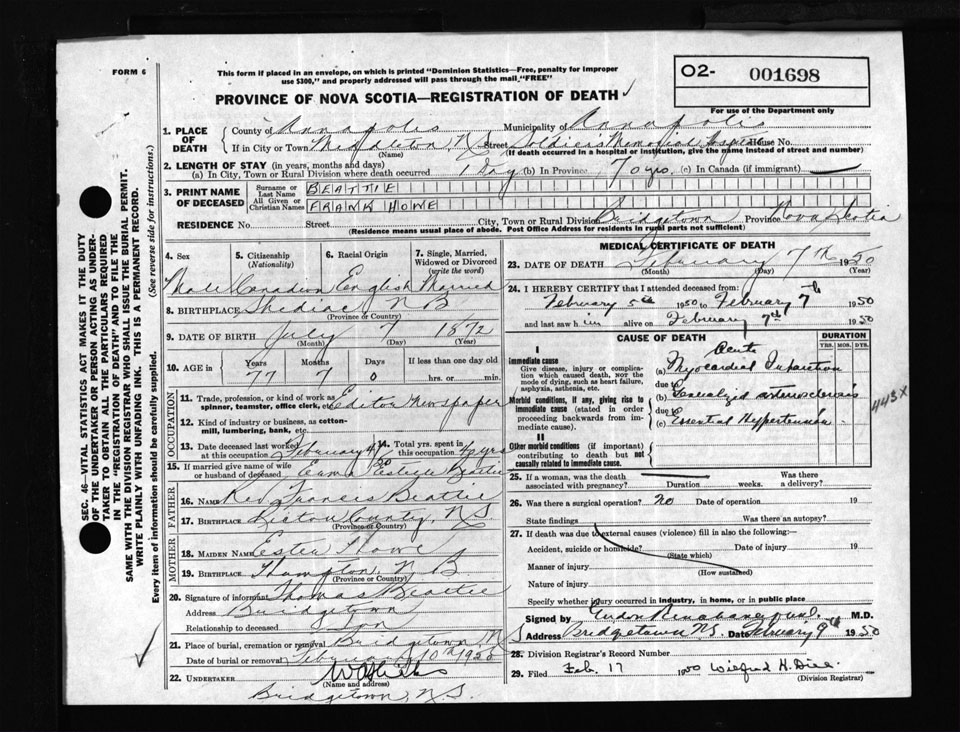 FORM 6
This form if placed in an envelope, on which is printed "Dominion Statistics—Free, penalty for improper
use $300," and properly addressed will pass through the mail, "FREE"
O2- 001698
PROVINCE OF NOVA SCOTIA—REGISTRATION OF DEATH ✓
For use of the Department only
1. PLACE OF DEATH { County of Annapolis Municipality of Annapolis
If in City or Town Middleton, N.S. Street Soldiers Memorial Hospital House No.
(Name) (If death occurred in a hospital or institution, give the name instead of street and number)
2. LENGTH OF STAY (in years, months and days)
(a) In City, Town or Rural Division where death occurred 1 Day (b) In Province 70 yrs. (c) In Canada (if immigrant)
3. PRINT NAME OF DECEASED { Surname or Last Name BEATTIE
All Given or Christian Names FRANK HOWE
RESIDENCE No. Street City, Town or Rural Division Bridgetown Province Nova Scotia
(Residence means usual place of abode. Post Office Address for residents in rural parts not sufficient)
SEC. 46—VITAL STATISTICS ACT MAKES IT THE DUTY
OF THE UNDERTAKER OR PERSON ACTING AS UNDER-
TAKER TO OBTAIN ALL THE PARTICULARS REQUIRED
IN THE "REGISTRATION OF DEATH" AND TO FILE THE
SAME WITH THE DIVISION REGISTRAR WHO SHALL ISSUE THE BURIAL PERMIT.
WRITE PLAINLY WITH UNFADING INK. THIS IS A PERMANENT RECORD.
Every item of information should be carefully supplied. (See reverse side for instructions.)
4. Sex 5. Citizenship (Nationality) 6. Racial Origin 7. Single, Married, Widowed or Divorced (write the word)
Male Canadian English Married
8. BIRTHPLACE Shediac, N B
(Province or Country)
9. DATE OF BIRTH July 7 1872
(Month) (Day) (Year)
10. AGE in { Years Months Days If less than one day old
77 7 0 hrs. or min.
OCCUPATION
11. Trade, profession, or kind of work as spinner, teamster, office clerk, etc. Editor Newspaper
12. Kind of industry or business, as cotton-mill, lumbering, bank, etc.
13. Date deceased last worked at this occupation February 4/50 14. Total yrs. spent in this occupation
15. If married give name of wife or husband of deceased Beattie
FATHER
16. Name Rev Francis Beattie
17. Birthplace Pictou County, N.S.
(Province or Country)
MOTHER
18. Maiden Name Ester Howe
19. Birthplace Hampton, N B
(Province or Country)
20. Signature of informant Thomas Beattie
Address Bridgetown
Relationship to deceased Son
21. Place of burial, cremation or removal Bridgetown, N
Date of burial or removal February 10th 1950
22. UNDERTAKER
(Name and address)
Bridgetown, N.S.
MEDICAL CERTIFICATE OF DEATH
23. DATE OF DEATH February 7th 1950
(Month) (Day) (Year)
24. I HEREBY CERTIFY that I attended deceased from:
February 5th 1950 to February 7th 1950
and last saw him alive on February 7th 1950
CAUSE OF DEATH DURATION
YRS. MOS. DYS.
I
Immediate cause
Give disease, injury or complication which caused death, not the mode of dying, such as heart failure, asphyxia, asthenia, etc.
Acute
(a) Myocardial Infarction
due to
Morbid conditions, if any, giving rise to immediate cause (stated in order proceeding backwards from immediate cause).
(b) Generalized arteriosclerosis
due to
(c) Essential Hypertension
443X
II
Other morbid conditions (if important) contributing to death but not causally related to immediate cause.
25. If a woman, was the death associated with pregnancy? Duration weeks. Was there a delivery?
26. Was there a surgical operation? No Date of operation 19
State findings Was there an autopsy?
27. If death was due to external causes (violence) fill in also the following:—
Accident, suicide or homicide? Date of injury 19
(State which)
Manner of injury
(How sustained)
Nature of injury
Specify whether injury occurred in industry, in home, or in public place
Signed by M.D.
Address Bridgetown N.S. Date February 9th 1950
28. Division Registrar's Record Number
29. Filed Feb. 17 1950 Wilfred H. Dill.
(Division Registrar)